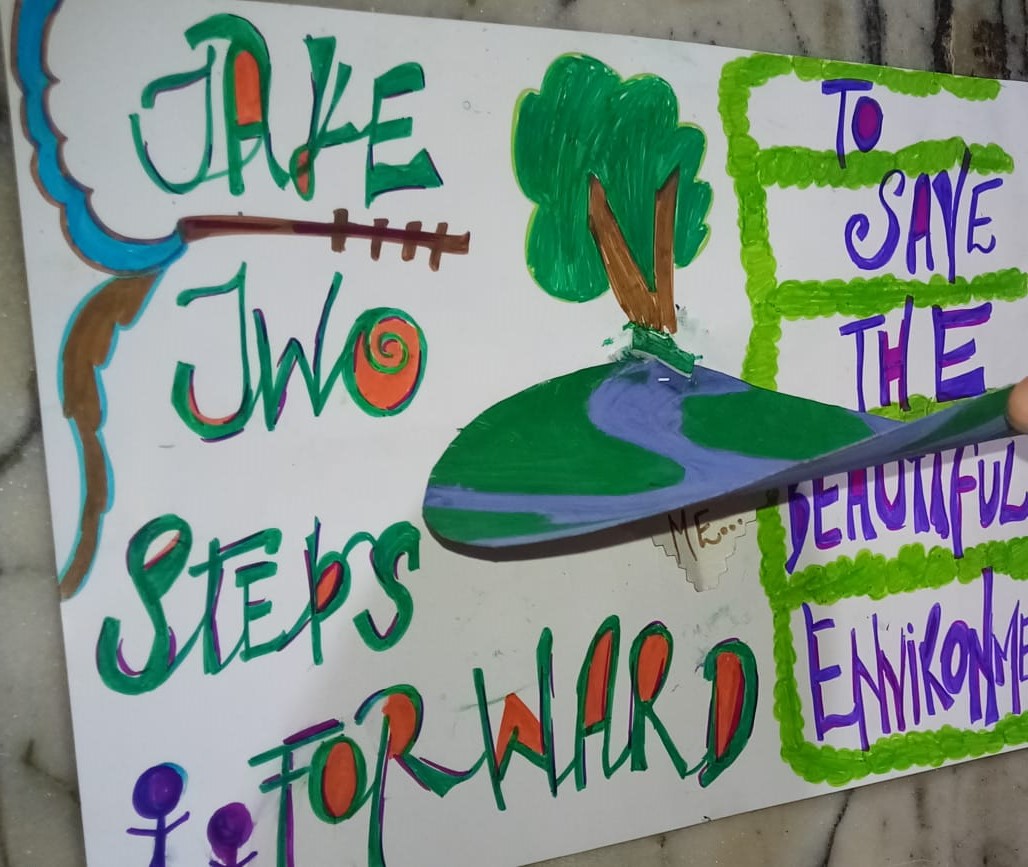 TAKE
TWO
STEPS
FORWARD
TO
SAVE
THE
BEAUTIFUL
ENVIRONME
ME...